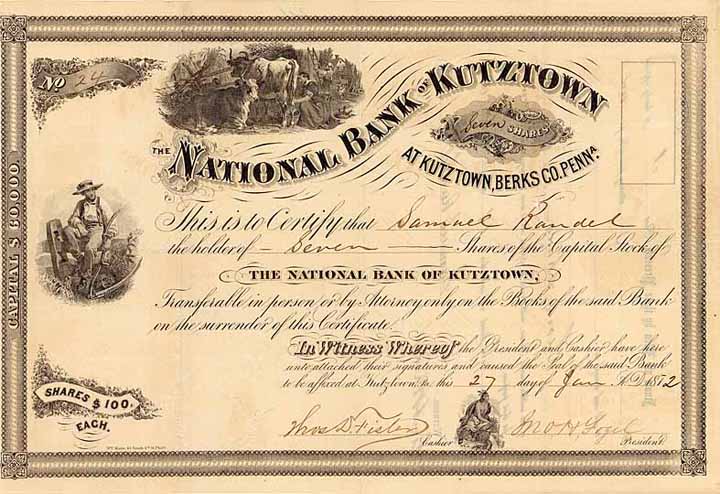 No 24
THE NATIONAL BANK OF KUTZTOWN
Seven SHARES
AT KUTZTOWN, BERKS CO. PENNA.
CAPITAL $ 60.000.
This is to Certify that Samuel Kandel
the holder of Seven Shares of the Capital Stock of
THE NATIONAL BANK OF KUTZTOWN,
Transferable in person or by Attorney only on the Books of the said Bank
on the surrender of this Certificate.
In Witness Whereof the President and Cashier have here
unto attached their signatures and caused the Seal of the said Bank
to be affixed at Kutztown, Pa. this 27 day of Jan A.D. 18
SHARES $ 100.
EACH.
Cashier
President